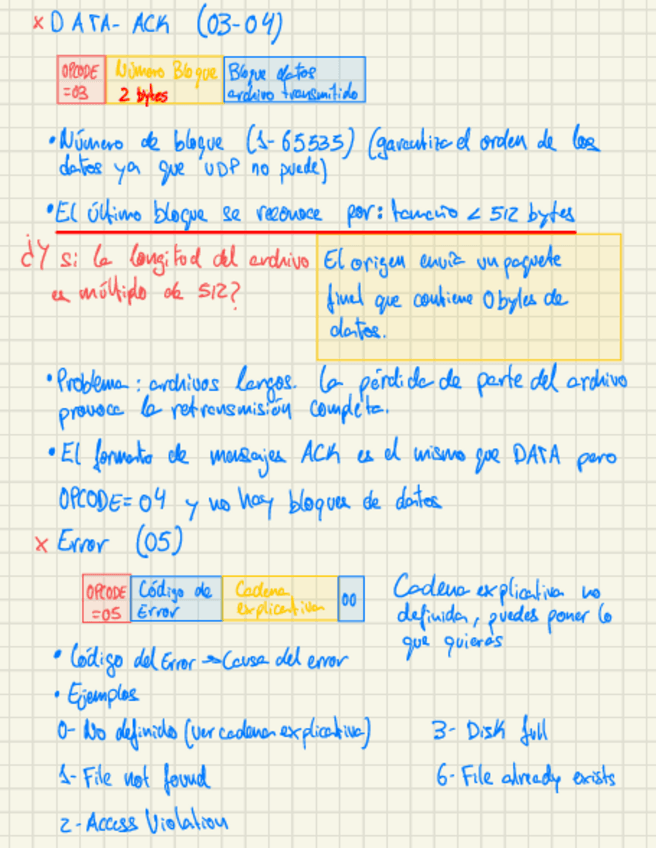 x DATA- ACK (03-04)
OPCODE Número Bloque Bloque datos
=03 2 bytes archivo transmitido
• Número de bloque (1-65535) (garantiza el orden de los
datos ya que UDP no puede)
• El último bloque se reconoce por: tamaño < 512 bytes
¿Y si la longitud del archivo
es múltiplo de 512?
El origen envía un paquete
final que contiene 0 bytes de
datos.
• Problema: archivos largos. La pérdida de parte del archivo
provoca la retransmisión completa.
• El formato de mensajes ACK es el mismo que DATA pero
OPCODE=04 y no hay bloques de datos
x Error (05)
OPCODE Código de Cadena 00
=05 Error explicativa
Cadena explicativa no
definida, puedes poner lo
que quieras
• Código del Error → Causa del error
• Ejemplos
0- No definido (ver cadena explicativa) 3- Disk full
1- File not found 6- File already exists
2- Access Violation